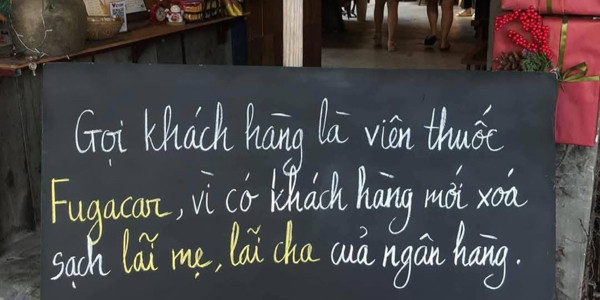 Gọi khách hàng là viên thuốc
Fugacar, vì có khách hàng mới xoá
sạch lãi mẹ, lãi cha cuả ngân hàng.